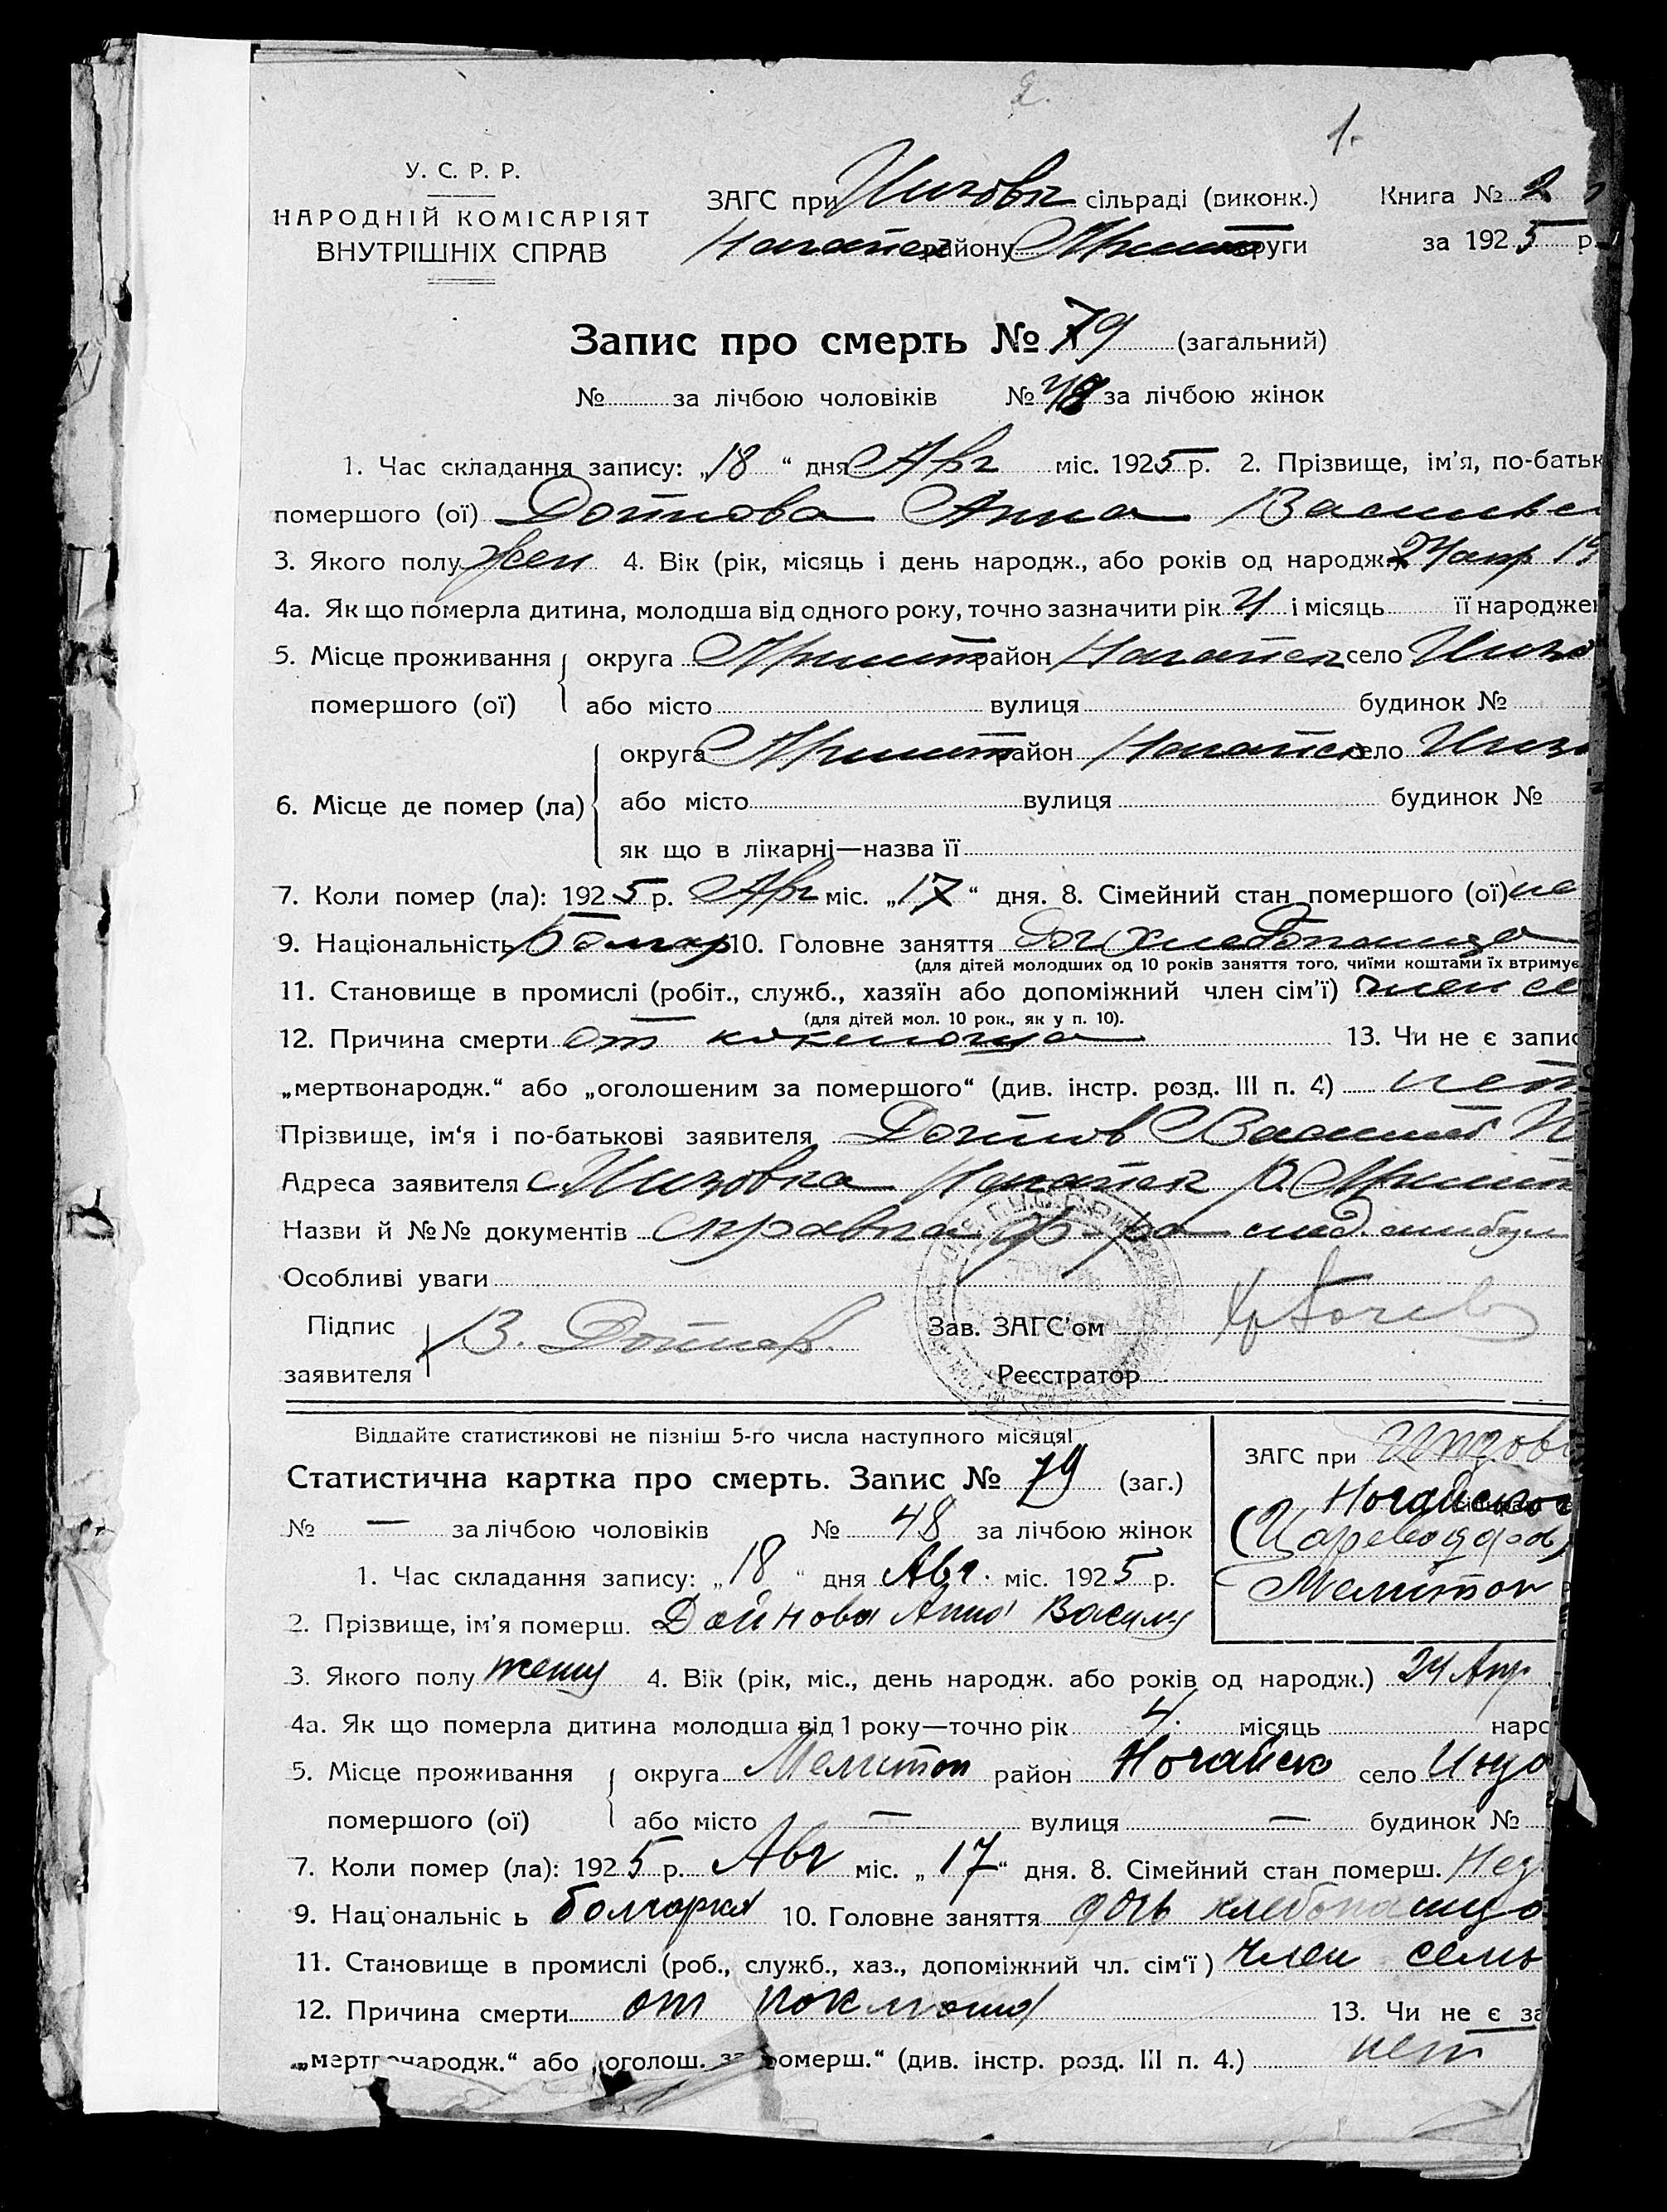 2.
1.
У. С. Р. Р.
НАРОДНІЙ КОМІСАРІЯТ
ВНУТРІШНІХ СПРАВ
ЗАГС при сільраді (виконк.) Книга № 2
району округи за 1925 р.
Запис про смерть № 79 (загальний)
№ за лічбою чоловіків № 48 за лічбою жінок
1. Час складання запису: „18 “ дня Авг міс. 1925 р. 2. Прізвище, ім'я, по-батьк
помершого (ої) Дойнова Анна Василье
3. Якого полу жен 4. Вік (рік, місяць і день народж., або років од народж.) 24 апр 19
4а. Як що померла дитина, молодша від одного року, точно зазначити рік 4 і місяць її народжен
5. Місце проживання округа район Ногайск село
помершого (ої) або місто вулиця будинок №
округа район Ногайск село
6. Місце де помер (ла) або місто вулиця будинок №
як що в лікарні—назва її
7. Коли помер (ла): 1925 р. Авг міс. „17“ дня. 8. Сімейний стан помершого (ої) не
9. Національність Болгар 10. Головне заняття доч хлебопашца
(для дітей молодших од 10 років заняття того, чиїми коштами їх втримує
11. Становище в промислі (робіт., служб., хазяїн або допоміжний член сім'ї) член се
(для дітей мол. 10 рок., як у п. 10).
12. Причина смерти от коклюша 13. Чи не є запис
„мертвонародж.“ або „оголошеним за помершого“ (див. інстр. розд. III п. 4) нет
Прізвище, ім'я і по-батькові заявителя Дойнов Василий
Адреса заявителя с. Ногайск р.
Назви й №№ документів справка
Особливі уваги
Підпис В. Дойнов. Зав. ЗАГС'ом
заявителя Реєстратор
Віддайте статистикові не пізніш 5-го числа наступного місяця!
ЗАГС при
Статистична картка про смерть. Запис № 79 (заг.)
Ногайско
№ — за лічбою чоловіків № 48 за лічбою жінок
1. Час складання запису: „18 “ дня Авг. міс. 1925 р.
Мелитоп
2. Прізвище, ім'я померш. Дойнова Анна Васил
3. Якого полу женщ 4. Вік (рік, міс., день народж. або років од народж.) 24 Апр
4а. Як що померла дитина молодша від 1 року—точно рік 4. місяць наро
5. Місце проживання округа Мелитоп район Ногайск село
помершого (ої) або місто — вулиця — будинок №
7. Коли помер (ла): 1925 р. Авг міс. „ 17“ дня. 8. Сімейний стан померш.
9. Національніс ь болгарка 10. Головне заняття дочь хлебопашца
11. Становище в промислі (роб., служб., хаз., допоміжний чл. сім'ї) член семь
12. Причина смерти от коклюша 13. Чи не є за
„мертвонародж.“ або „оголош. за померш.“ (див. інстр. розд. III п. 4.) нет